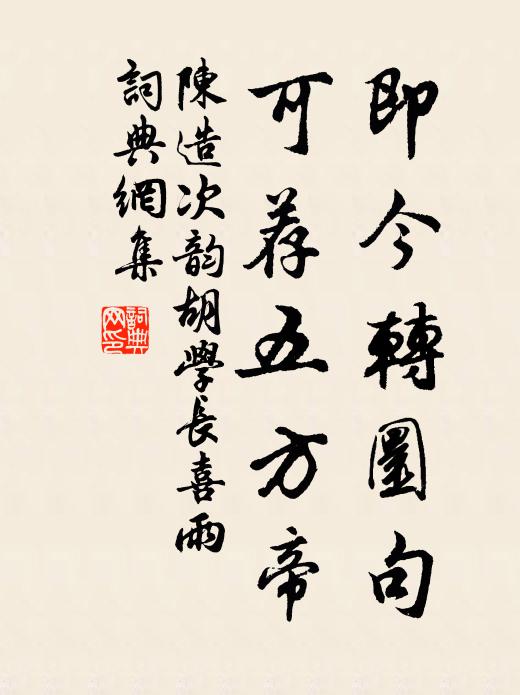 即今轉圜句
可荐五方帝
陳造次韵胡學長喜雨
詞典網集
詞典
网印